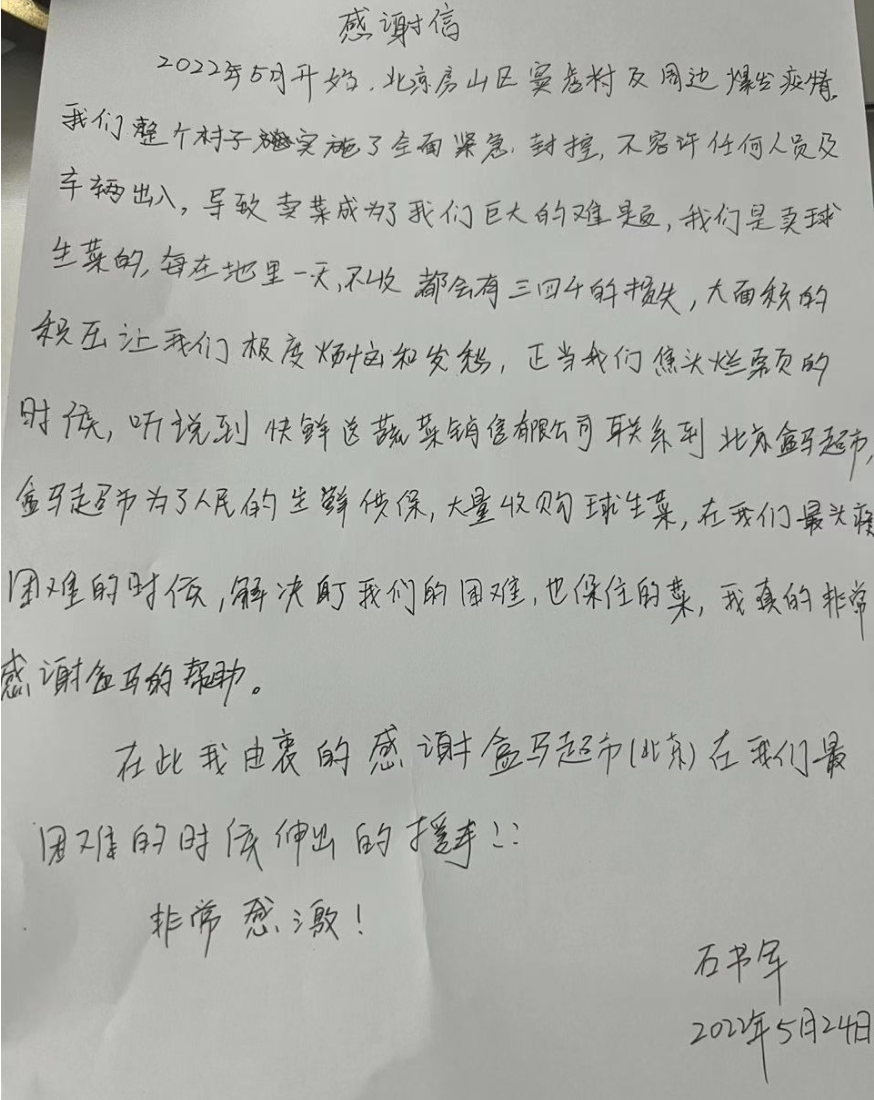 感谢信
2022年5月开始,北京房山区窦店村及周边爆发疫情,
我们整个村子实施了全面紧急封控,不容许任何人员及
车辆出入,导致卖菜成为了我们巨大的难题,我们是卖球
生菜的,每在地里一天,不收都会有三四千的损失,大面积的
积压让我们极度烦恼和发愁,正当我们焦头烂额的
时候,听说到快鲜送蔬菜销售有限公司联系到北京盒马超市,
盒马超市为了人民的生鲜供保,大量收购球生菜,在我们最头疼
困难的时候,解决了我们的困难,也保住的菜,我真的非常
感谢盒马的帮助。
在此我由衷的感谢盒马超市(北京)在我们最
困难的时候伸出的援手!!
非常感激!
石书军
2022年5月24日